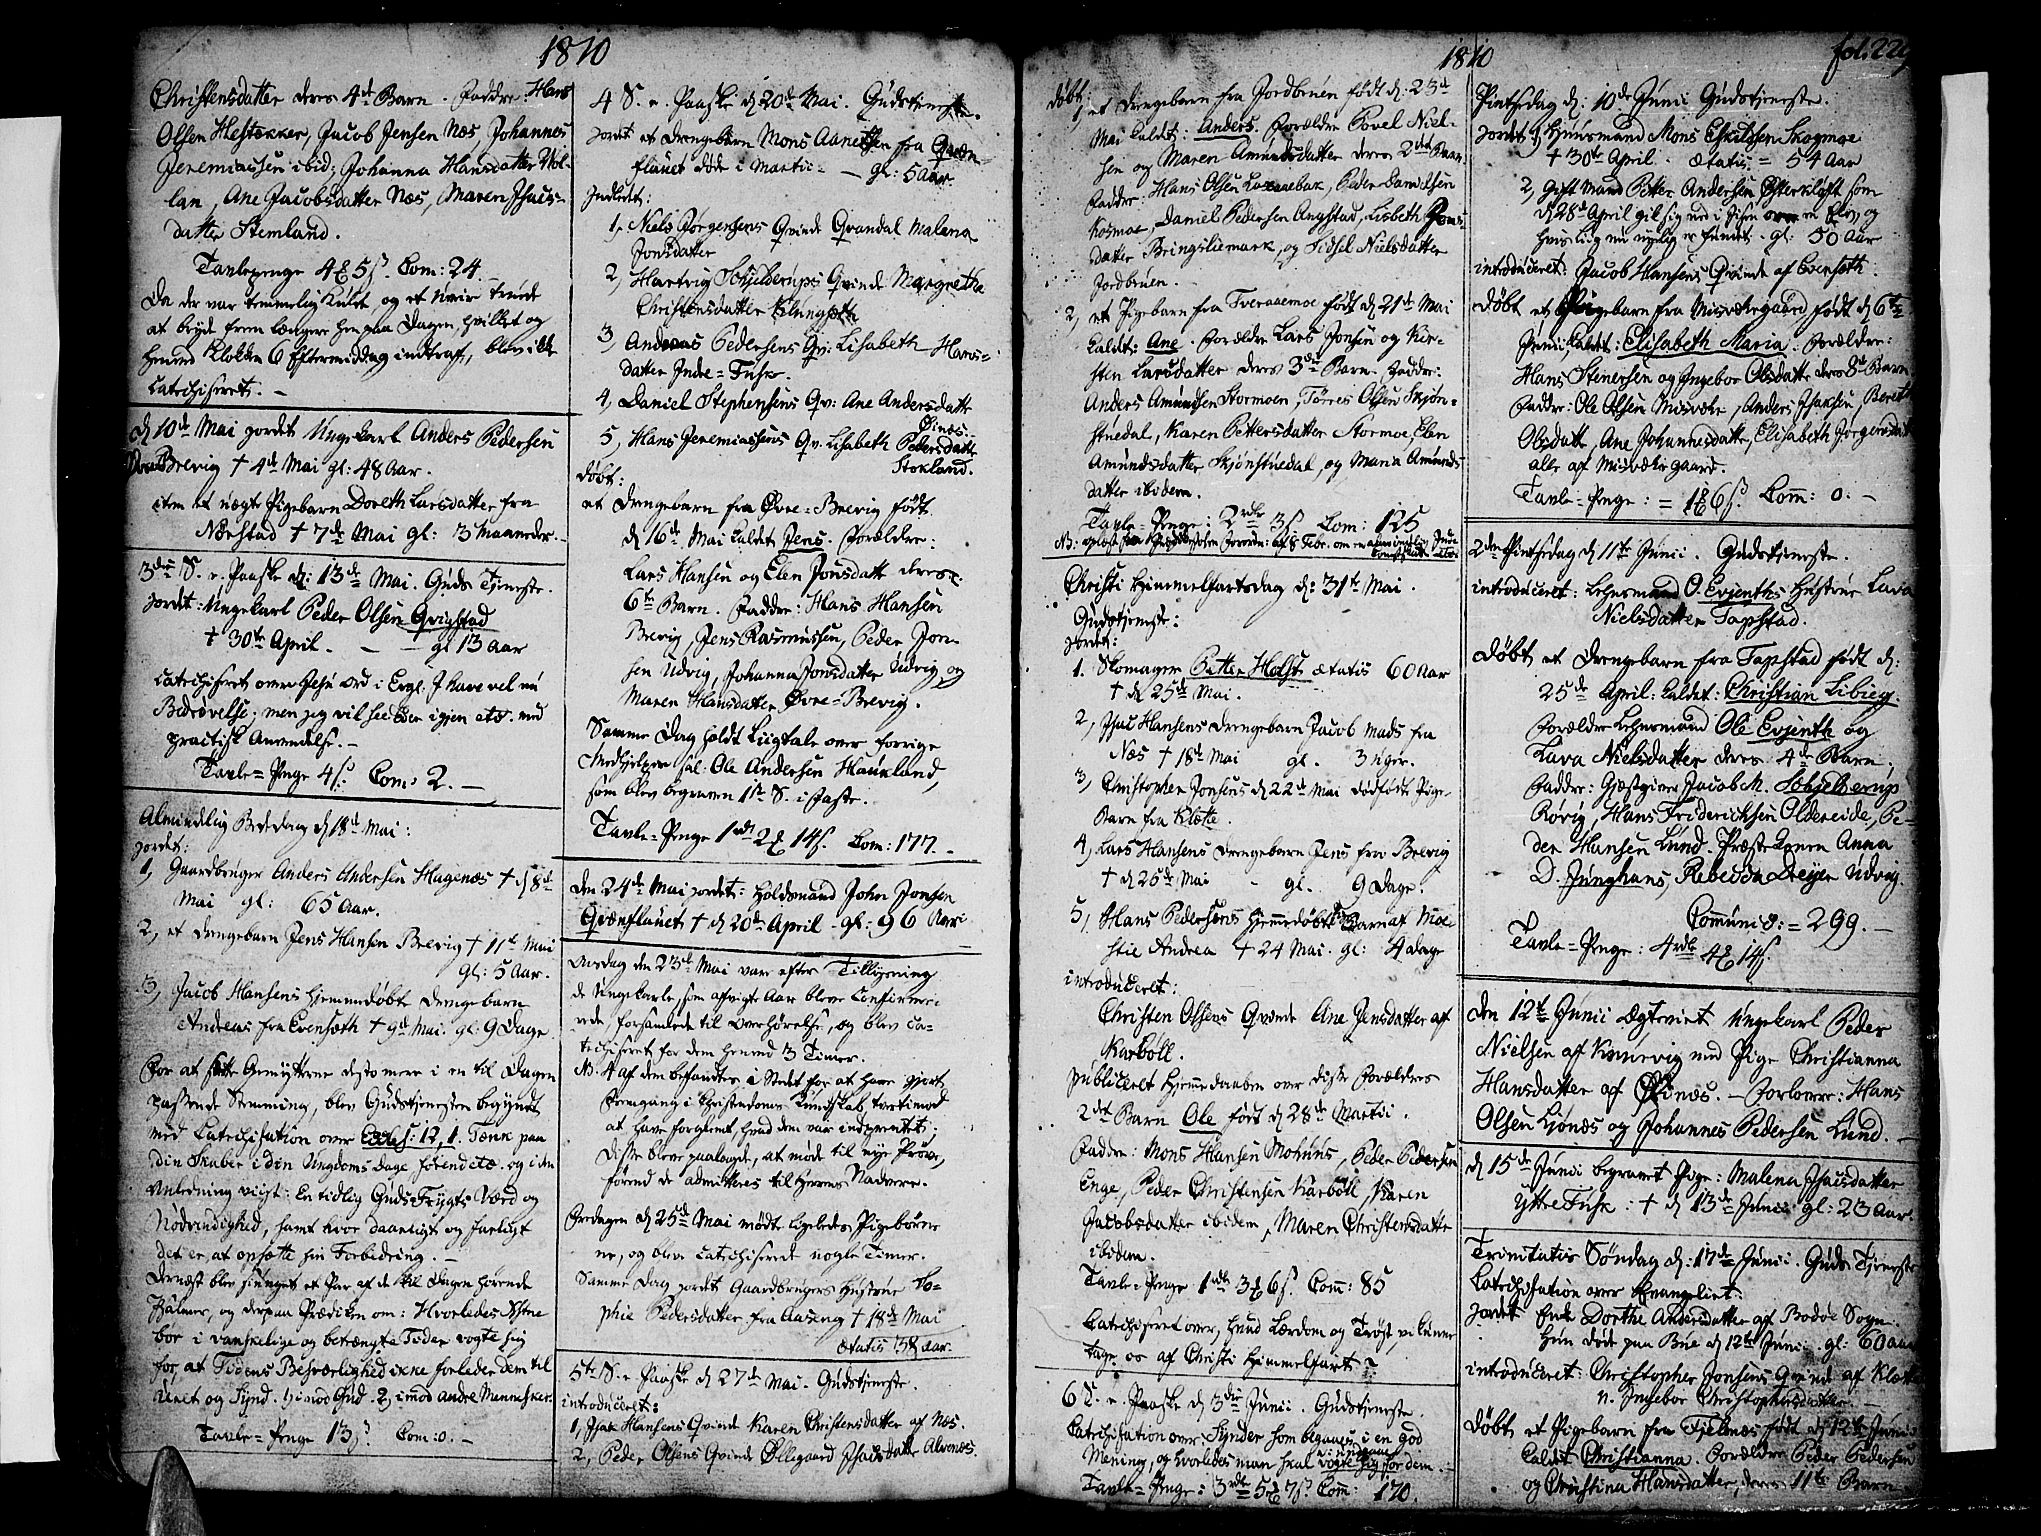 1810
Christensdatter deres 4de Barn. Faddre: Hans
Olsen Hestækker, Jacob Jensen Næs, Johannes
Jeremiassen ibid; Johanna Hansdatter
lan, Ane Jacobsdatter Næs, Maren Isacs-
datter Stemland.
Tavlepenge 4 5 ß. Com: 24.
Da der var temmelig Kuldt, og et Uveir truede
at bryde frem længere hen paa Dagen, hvilket og
henved Klokken 6 Eftermiddag indtraf, blev ikke
Catechiseret. -
d 10de Mai jordet Ungekarl Anders Pedersen
Brevig † 4de Mai gl: 48 Aar.
item et uægte Pigebarn Doreth Larsdatter fra
Næstad † 7de Mai gl: 3 Maaneder. -
3die S. e. Paaske d: 13de Mai. Guds Tjeneste.
jordet: Ungekarl Peder Olsen Qvigstad
† 30te April. - - gl 13 Aar
Catechiseret over Jesu Ord i Evgl. I have vel nu
Bedrøvelse; men jeg vil see Eder igjen etc. med
practisk Anvendelse. -
Tavle-Penge 4 ß. Com: 2. -
Almindelig Bededag d 18de Mai:
jordet:
1, Gaardbruger Anders Andersen Hagenæs † d 8de
Mai gl: 65 Aar.
2, et Drengebarn Jens Hansen Brevig † 11te Mai
gl: 5 Aar.
3, Jacob Hansens hjemmedøbte Drengebarn
Andreas fra Evensæth † 9de Mai. gl: 9 Dage
For at sætte Gemytterne desto mere i en til Dagen
passende Stemning, blev Gudstjenesten begyndt
med Catechisation over Eccles: 12,1. Tænk paa
din Skaber i din Ungdoms Dage førend etc. og i den
Anledning viist: En tidlig Guds Frygts Værd og
Nødvendighed, samt hvor daarligt og farligt
det er at opsætte sin Forbedring. -
Dernæst blev siunget et Par af de til Dagen hørende
Psalmer, og derpaa Prædiken om: Hvorledes
bør i vanskelige og betrængte Tider vogte sig
for, at Tidens Besværlighed ikke forlede dem til
Uret og Synd. 1) imod Gud. 2) imod andre Mennesker.
Tavle-Penge 13 ß. Com: 0. -
4 S. e. Paaske d 20de Mai. Gudstjeneste.
jordet et Drengebarn Mons Aanetsen fra Qvæn-
flauet døde i Martii - - gl: 5 Aar
Indledet:
1, Niels Jørgensens Qvinde Qvandal Malena
Jonsdatter
2, Hartvig Schjelderups Qvinde Margrethe
Christensdatter Klungsæth
3, Andreas Pedersens Qv: Lisabeth Hans-
datter Indre-Fuske.
4, Daniel Stephensens Qv: Ane Andersdatter
Øinæs.
5, Hans Jeremiassens Qv: Lisabeth Pedersdatter
Stokland.
døbt:
et Drengebarn fra Øvre-Brevig født
d 16de Mai kaldet Jens. Forældre:
Lars Hansen og Elen Jonsdatter deres
6te Barn. Faddre: Hans Hansen
Brevig, Jens Rasmussen, Peder Jon-
sen Udvig, Johanna Jonsdatter Udvig og
Maren Hansdatter Øvre-Brevig.
Samme Dag holdt Liigtale over forrige
Medhjelper sal: Ole Andersen Haukland,
som blev begraven 1te S. i Faste.
Tavle-Penge 1 rdlr 2 14 ß. Com: 177. -
den 24de Mai jordet: Holdsmand John Jonsen
Qvænflauet † d 20de April - gl: 96 Aar
Onsdag den 23de Mai vare efter Tillysning
de Ungekarle, som afvigte Aar bleve Confirme-
rede, forsamlede til Overhørelse, og blev ca-
techiseret for dem henved 3 Timer.
NB. 4 af dem befandtes i Stedet for at have gjort
Fremgang i Christendoms Kundskab, tvertimod
at have forglemt hvad dem var indprentet;
disse bleve paalagde, at møde til nye Prøve,
førend de admitteres til Herrens Nadvere.
Fredagen d 25de Mai mødte ligeledes Pigebørne-
ne, og bleve catechiserede nogle Timer.
Samme Dag jordet Gaardbrugers Hustrue So-
phie Pedersdatter fra Aaseng † 18de Mai
ætatis 38 Aar.
5te S. e. Paaske d 27de Mai. Gudstjeneste.
introduceret:
1, Isak Hansens Qvinde Karen Christensdatter af Næs.
2, Peder Olsens Qvinde Øllegaard Isacsdatter Alvenæs.
1810
fol. 229
døbt:
1, et Drengebarn fra Jordbruen født d: 23de
Mai kaldet: Anders. Forældre Povel Niel-
sen og Maren Amundsdatter deres 2det Barn
Faddre: Hans Olsen Laxebak, Peder Danielsen
Kosmoe, Daniel Pedersen Angstad, Lisbeth Jons-
datter Bringsliemark, og Sidsel Nielsdatter
Jordbruen.
2, et Pigebarn fra Tveraaemoe født d 21de Mai
kaldet: Ane. Forældre Lars Jonsen og Kir-
sten Larsdatter deres 3de Barn. Faddre:
Anders Amundsen Stormoen, Tørres Olsen Skjøn-
stuedal, Karen Pettersdatter Stormoe, Elen
Amundsdatter Skjønstuedal, og Maria Amunds-
datter ibidem.
Tavle-Penge: 2 rdlr 3 ß. Com: 125
Christi Himmelfartsdag d: 31te Mai.
Gudstjeneste:
jordet:
1. Skomager Petter Holst ætatis 60 Aar
† d 25de Mai.
2, Isac Hansens Drengebarn Jacob Mads fra
Næs † 18de Mai gl. 3 Uger.
3, Christopher Jonsens d 22de Mai dødfødte Pige-
Barn fra Klætte.
4, Lars Hansens Drengebarn Jens fra Brevig
† d 25de Mai - gl. 9 Dage.
5, Hans Pedersens hjemmedøbte Barn af Moe
Andrea † 24 Mai. gl: 4 Dage
introduceret:
Christen Olsens Qvinde Ane Jensdatter af
Karbøll.
publiceret Hjemmedaaben over disse Forældres
2det Barn Ole født d 28de Martii.
Faddre: Mons Hansen Mohuus, Peder Pedersen
Enge, Peder Christensen Karbøll, Karen
Jacobsdatter ibidem, Maren Christensdatter
ibidem.
Tavle-Penge 1 rdlr 3 6 ß. Com: 85
Catechiseret over, hvad Lærdom og Trøst vi kunne
tage os af Christi Himmelfart?
6 S. e. Paaske d 3die Junii. Gudstjeneste.
Catechisation over: Synder som begaaes i en god
Mening, og hvorledes man skal vogte sig for dem. -
Tavle-Penge: 3 rdlr 5 7 ß. Com: 170.
1810
Pintsdag d: 10de Junii Gudstjeneste.
jordet 1) Huusmand Mons Eskildsen Skogmoe
† 30te April. ætatis = 54 Aar
2, Gift Mand Petter Andersen Østerkløft som
d 28de April gik sig ned i Isen over en Elv, og
hvis Liig nu nylig er fundet. gl: 50 Aar
introduceret: Jacob Hansens Qvinde af Evensæth.
døbt et Pigebarn fra Misværgaard født d 6te
Junii, kaldet: Elisabeth Maria. Forældre:
Hans Stenersen og Ingebor Olsdatter deres 8de Barn
Faddre: Ole Olsen Misvær, Anders Isaksen, Beret
Olsdatter, Ane Johannesdatter, Elisabeth Jørgensdatter
alle af Misværgaard.
Tavle-Penge: = 1 6 ß. Com: 0. -
2den Pintsdag d 11te Junii. Gudstjeneste.
introduceret: Lehnsmand O. Evjenths Hustrue Lava
Nielsdatter Tapstad.
døbt et Drengebarn fra Tapstad født d:
25de April: kaldet: Christian Libieg.
Forældre Lehnsmand Ole Evjenth og
Lava Nielsdatter deres 4de Barn;
Faddre: Gjæstgiver Jacob M. Schjelderup
Rørvig, Hans Friderichsen Oldereide, Pe-
der Hansen Lund, Præstekonen Anna
D. Junghans, Rebecka Dreyer Udvig.
Comuni: = 299. -
Tavle-Penge: 4 rdlr 4 14 ß.
den 12te Junii Ægteviet Ungekarl Peder
Nielsen af Knævig med Pige Christianna
Hansdatter af Øinæs. - Forlovere: Hans
Olsen Ljønæs og Johannes Pedersen Lund. -
d 15de Junii begravet Pige: Malena Isacsdatter
Yttre Fuske: † d 13de Junii gl: 23 Aar.
Trinitatis Søndag d: 17de Junii. Guds Tjeneste
Catechisation over Evangeliet.
jordet Enke Dorthe Andersdatter af Bodøe Sogn
hun døde paa Bue d 12te Junii. gl: 60 Aar
introduceret: Christopher Jonsens Qvinde af Klætte
n. Ingebor Christophersdatter. -
døbt et Pigebarn fra Tjelnæs født d 12te Junii
kaldet Christianna. Forældre Peder Pedersen
og Christina Hansdatter, deres 11te Barn.